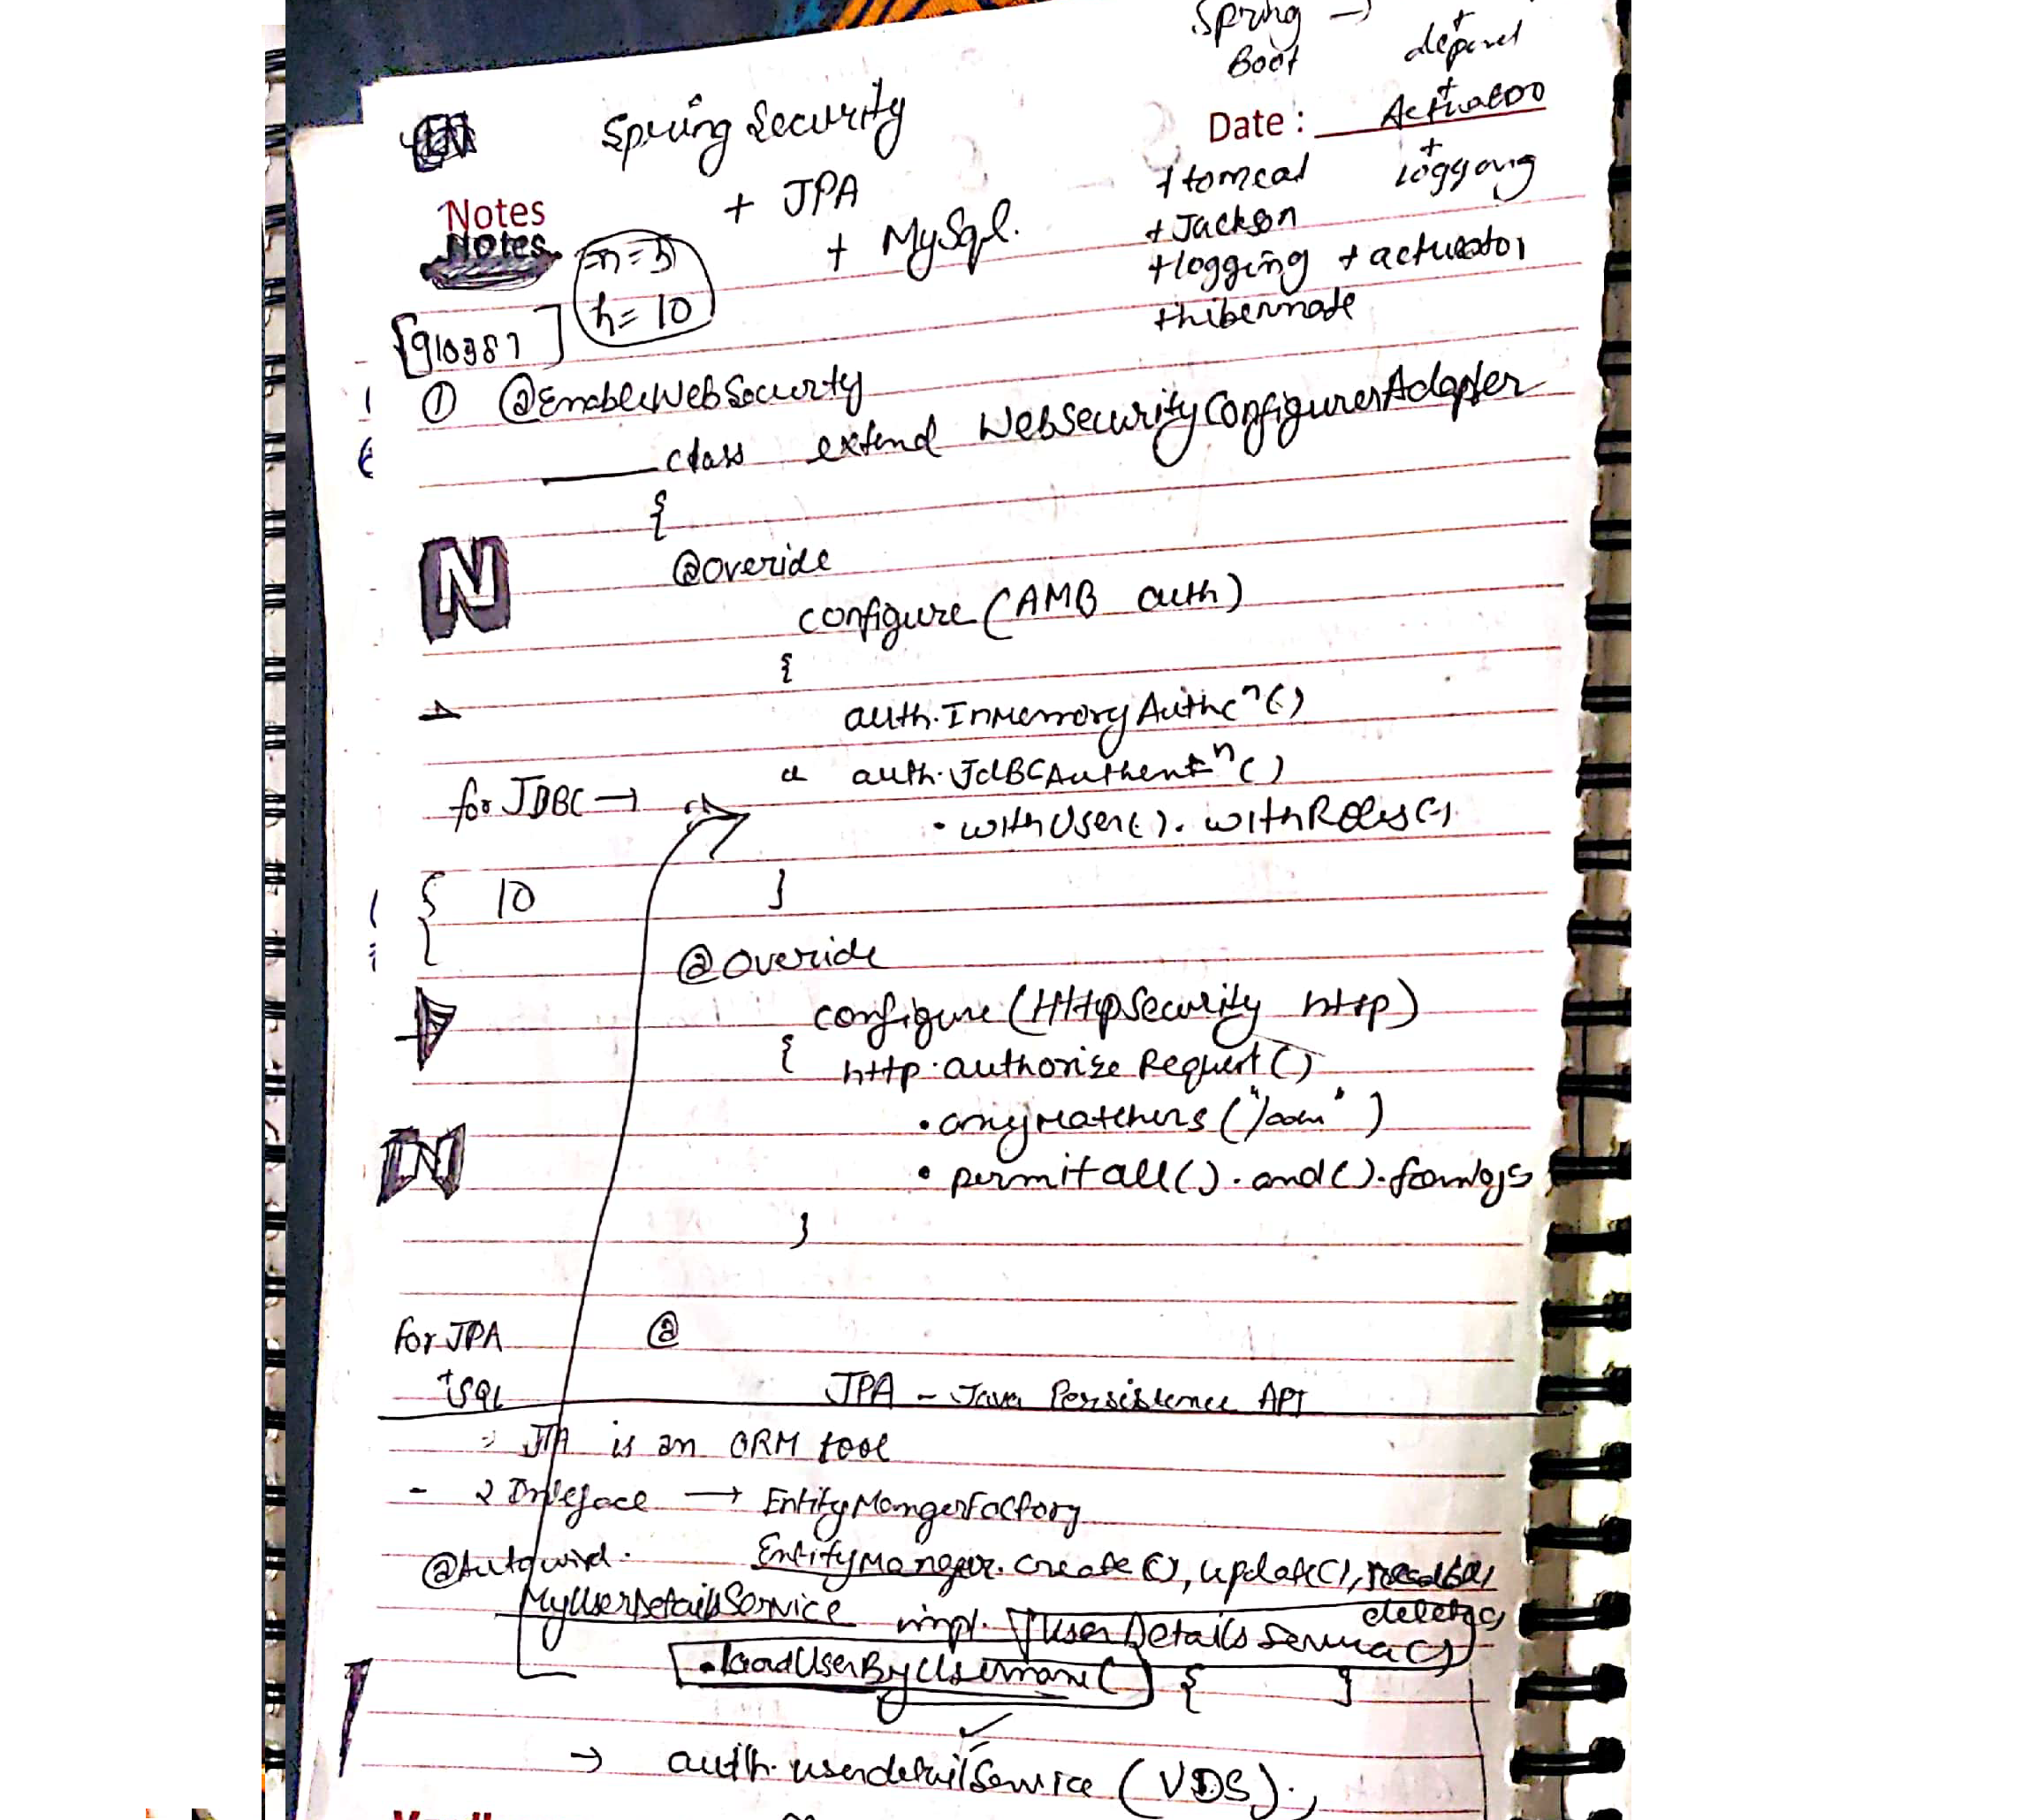 Spring →
Boot
+
depend
+
Actuatoo
Date :
+
loggong
Spring Security
+ JPA
+ MySql.
+ tomcat
+ Jackson
+ logging + actuator
+ hibernate
Notes
Notes
n = 5
h = 10
[910387]
① @EnableWebSecurty
class extend WebSecurityConfigurerAdapter
{
N
@Overide
configure (AMB auth)
{
auth.InMemoryAuthcⁿ()
auth.JdBCAuthentⁿ()
for JDBC →
.withUser().withRoles()
{ 10
}
@Override
configure (HttpSecurity http)
{ http.authorize Request()
.anyMatchers("/
N
.permitall().and().formlogs
}
for JPA @
+SQL
JPA - Java Persistence API
JPA is an ORM tool
- 2 Interface → EntityMangerFactory
@Autowird.
EntityManager.create(), update(), read(),
delete()
MyUserDetailsService impl. UserDetailsService()
.loadUserByUsername() { }
→ auth.userdetailService (UDS);